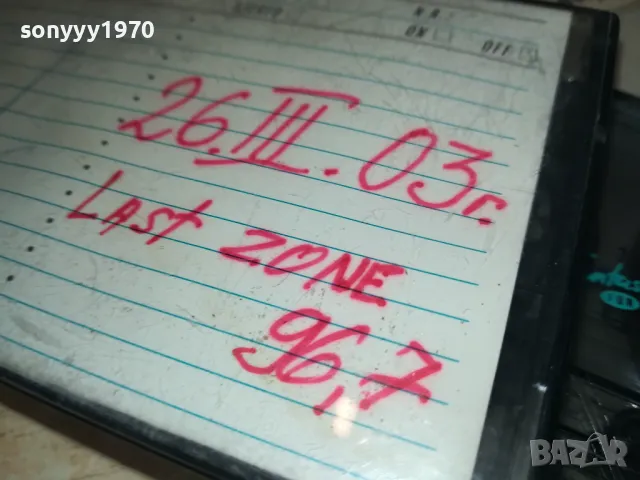 sonyyy1970
N.R.
ON OFF
26.III.03г.
LAST ZONE
96,7
BAZAR